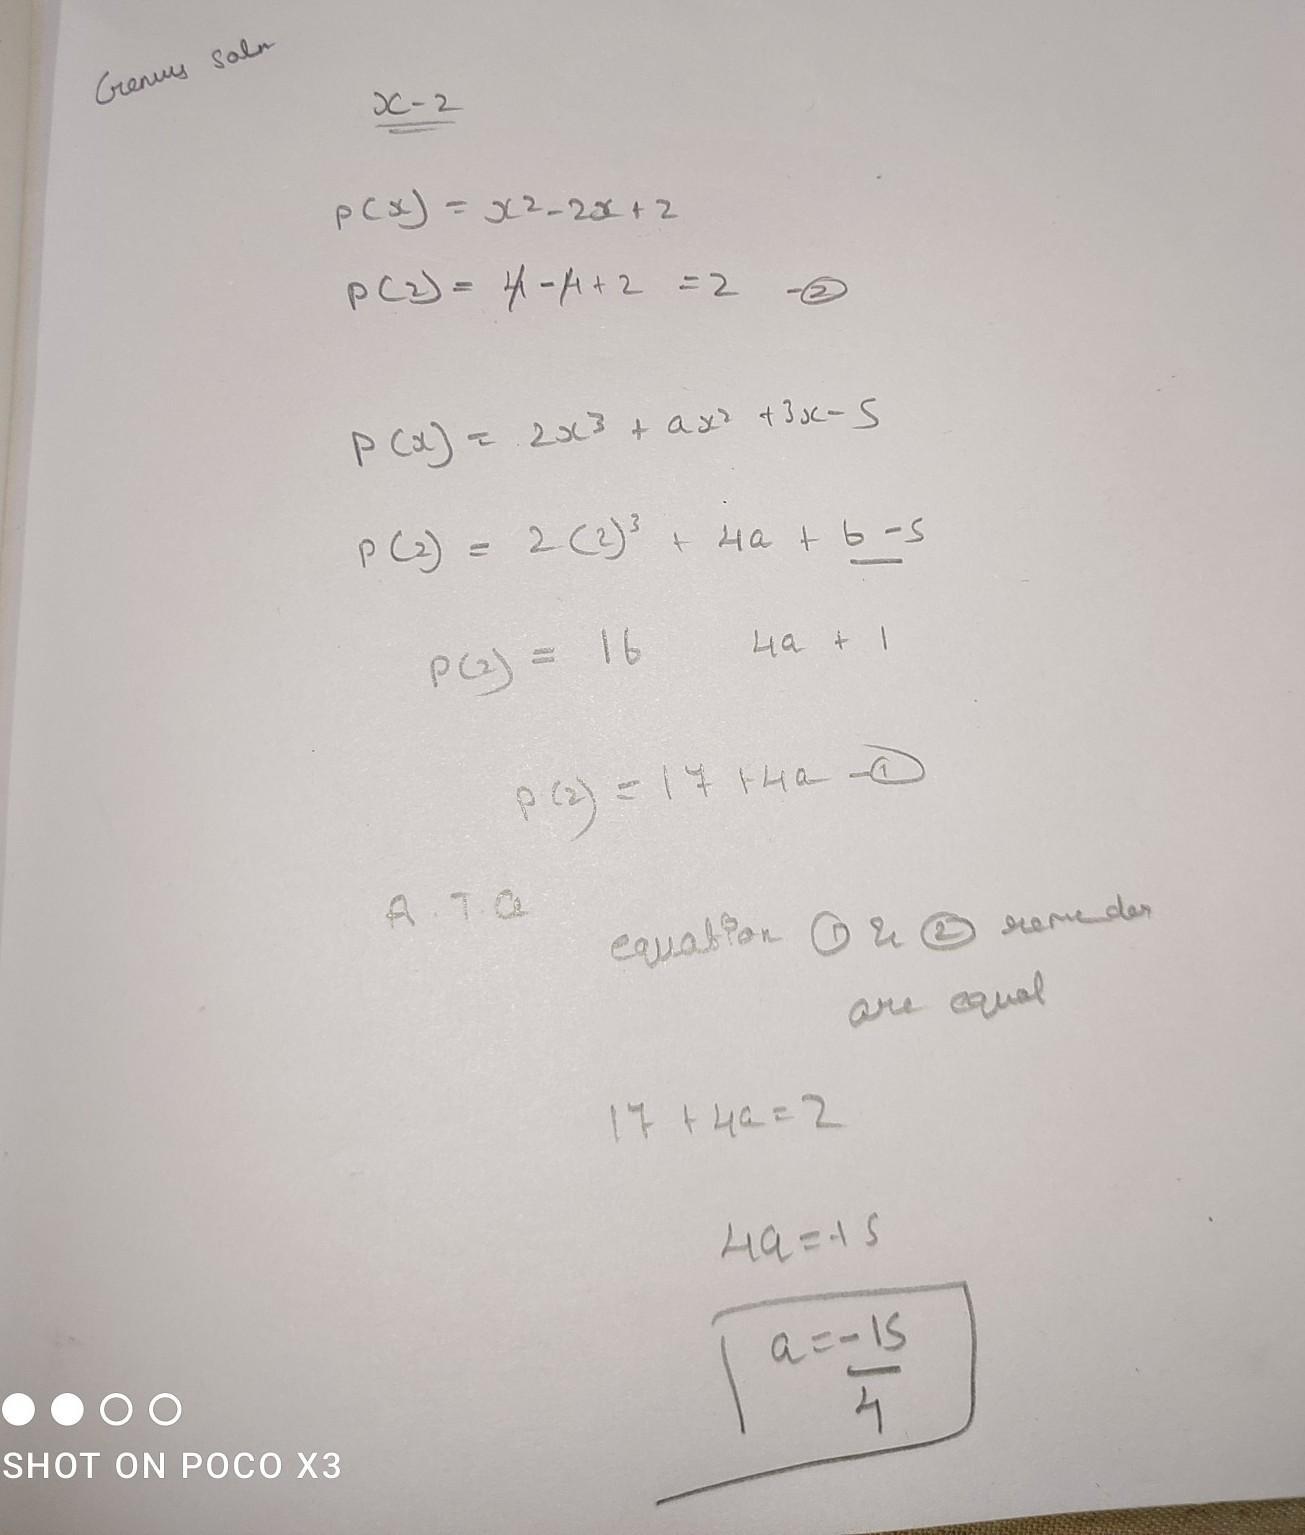 Genius soln
x-2
p(x) = x2-2x+2
p(2) = 4-4+2 =2 -②
p(x) = 2x³ + ax² +3x-5
p(2) = 2(2)³ + 4a + 6-5
p(2) = 16 4a + 1
p(2) = 17 +4a -①
A.T.Q
equation ① & ②
are equal
17 + 4a = 2
4a=-15
a=-15
4
SHOT ON POCO X3